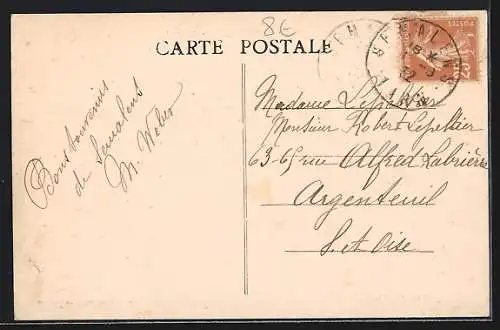 8€
CARTE POSTALE
SEMAL
TARN
Bons souvenirs
de Semalens
M. Weber
Madame Lepeltier
Monsieur Robert Lepeltier
63-65 rue Alfred Labrière
Argenteuil
S. et Oise